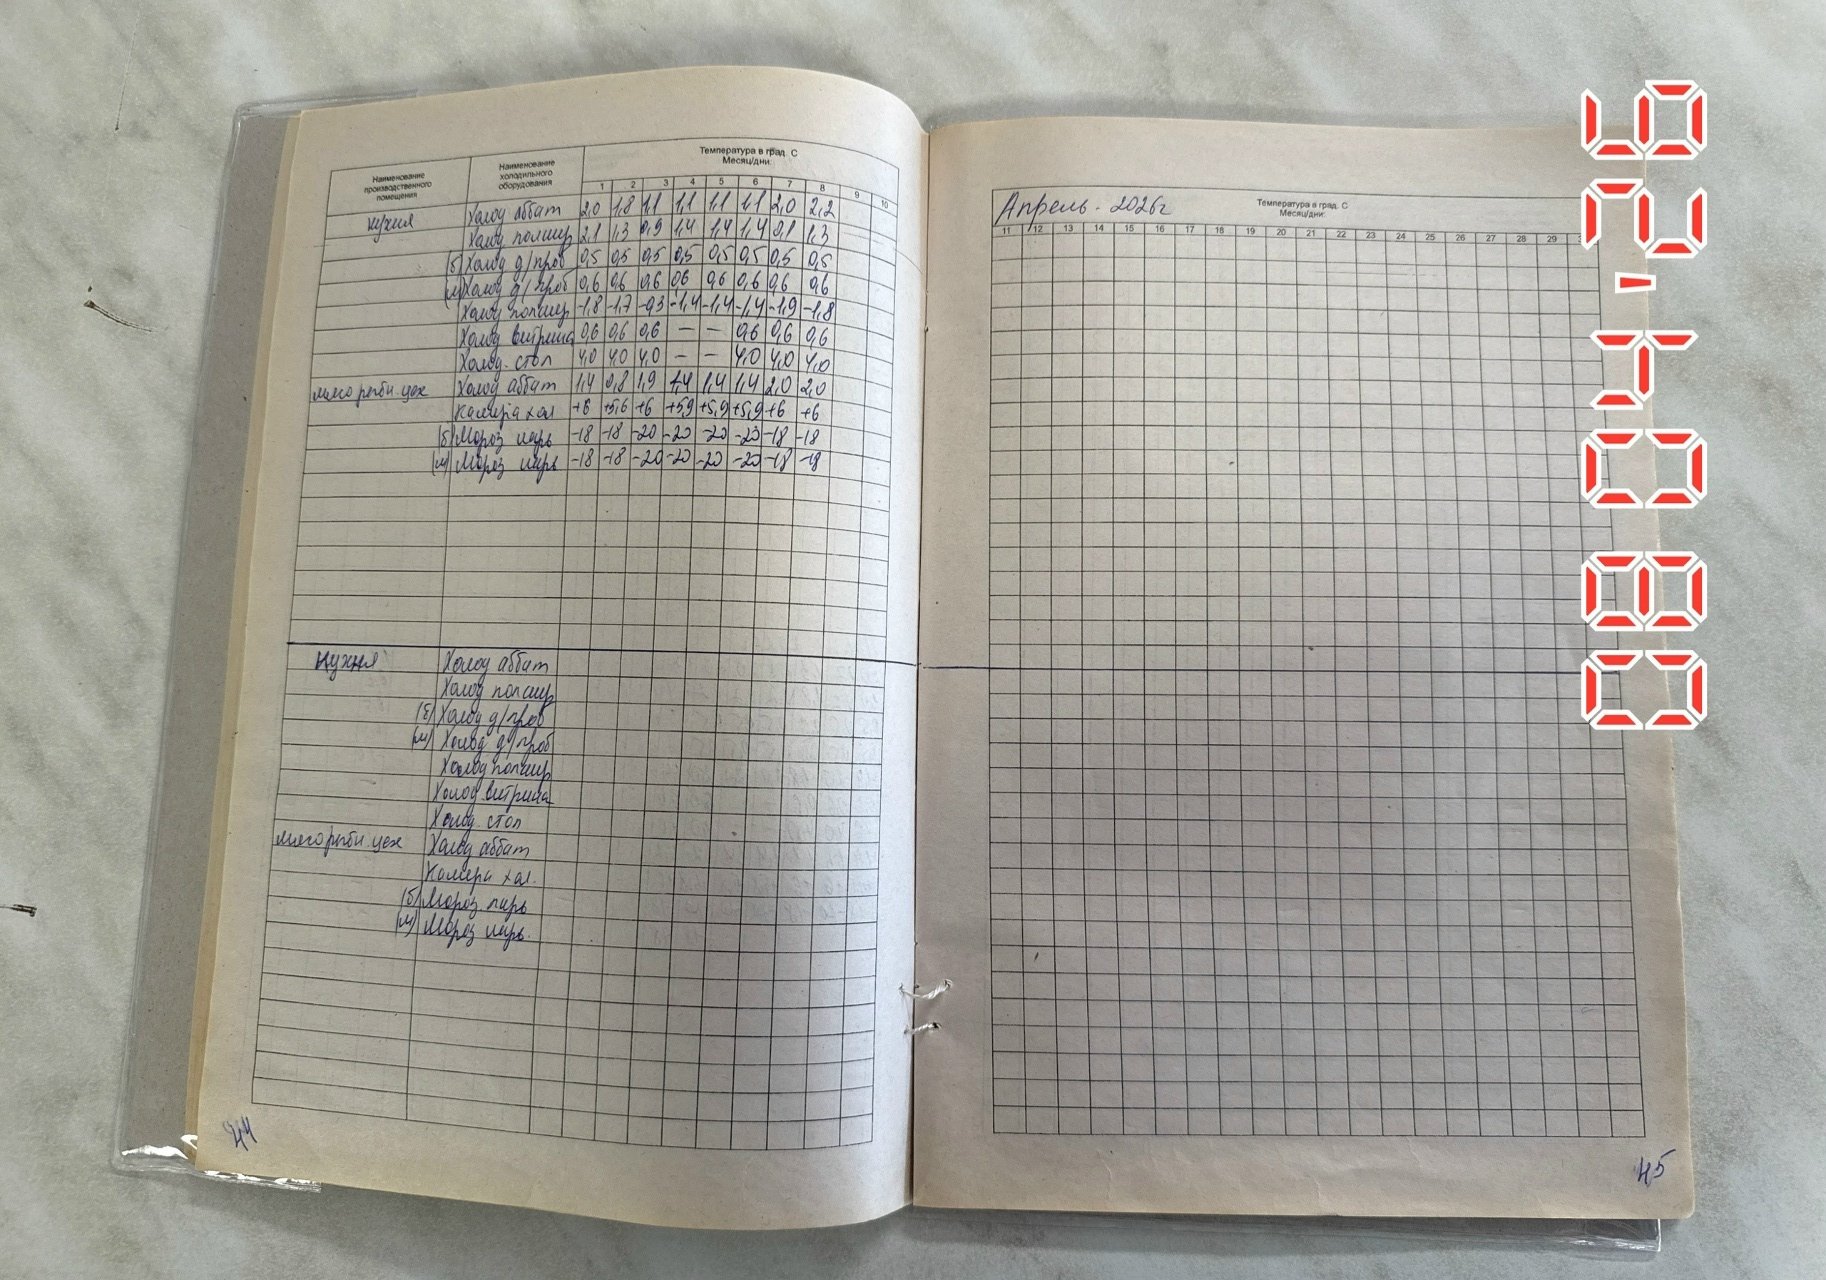 Наименование производственного помещения
Наименование холодильного оборудования
Температура в град. С
Месяц/дни:
1 2 3 4 5 6 7 8 9 10
кухня Холод аббат 2,0 1,8 1,1 1,1 1,1 1,1 2,0 2,2
Холод полаир 2,1 1,3 0,9 1,4 1,4 1,4 0,1 1,3
(б) Холод д/проб 0,5 0,5 0,5 0,5 0,5 0,5 0,5 0,5
(м) Холод д/проб 0,6 0,6 0,6 0,6 0,6 0,6 0,6 0,6
Холод полаир -1,8 -1,7 -0,3 -1,4 -1,4 -1,4 -1,9 -1,8
Холод витрина 0,6 0,6 0,6 — — 0,6 0,6 0,6
Холод. стол 4,0 4,0 4,0 — — 4,0 4,0 4,0
мясо рыбн. цех Холод аббат 1,4 0,8 1,9 1,4 1,4 1,4 2,0 2,0
Камера хол +6 +5,6 +6 +5,9 +5,9 +5,9 +6 +6
(б) Мороз ларь -18 -18 -20 -20 -20 -20 -18 -18
(м) Мороз ларь -18 -18 -20 -20 -20 -20 -18 -18
кухня Холод аббат
Холод полаир
(б) Холод д/проб
(м) Холод д/проб
Холод полаир
Холод витрина
Холод. стол
мясо рыбн. цех Холод аббат
Камера хол.
(б) Мороз ларь
(м) Мороз ларь.
44
Апрель - 2026г
Температура в град. С
Месяц/дни:
11 12 13 14 15 16 17 18 19 20 21 22 23 24 25 26 27 28 29
45
08 04 '26